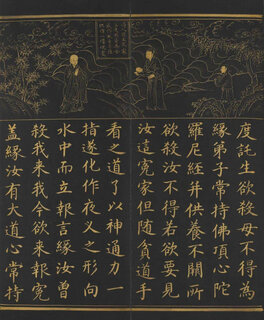 度託生欲殺母不得為
緣弟子常持佛頂心陀
羅尼經并供養不闕所
欲殺汝不得若欲要見
汝這寃家但隨貧道手
看之道了以神通力一
指遂化作夜叉之形向
水中而立報言緣汝曾
殺我來我今欲來報寃
蓋緣汝有大道心常持